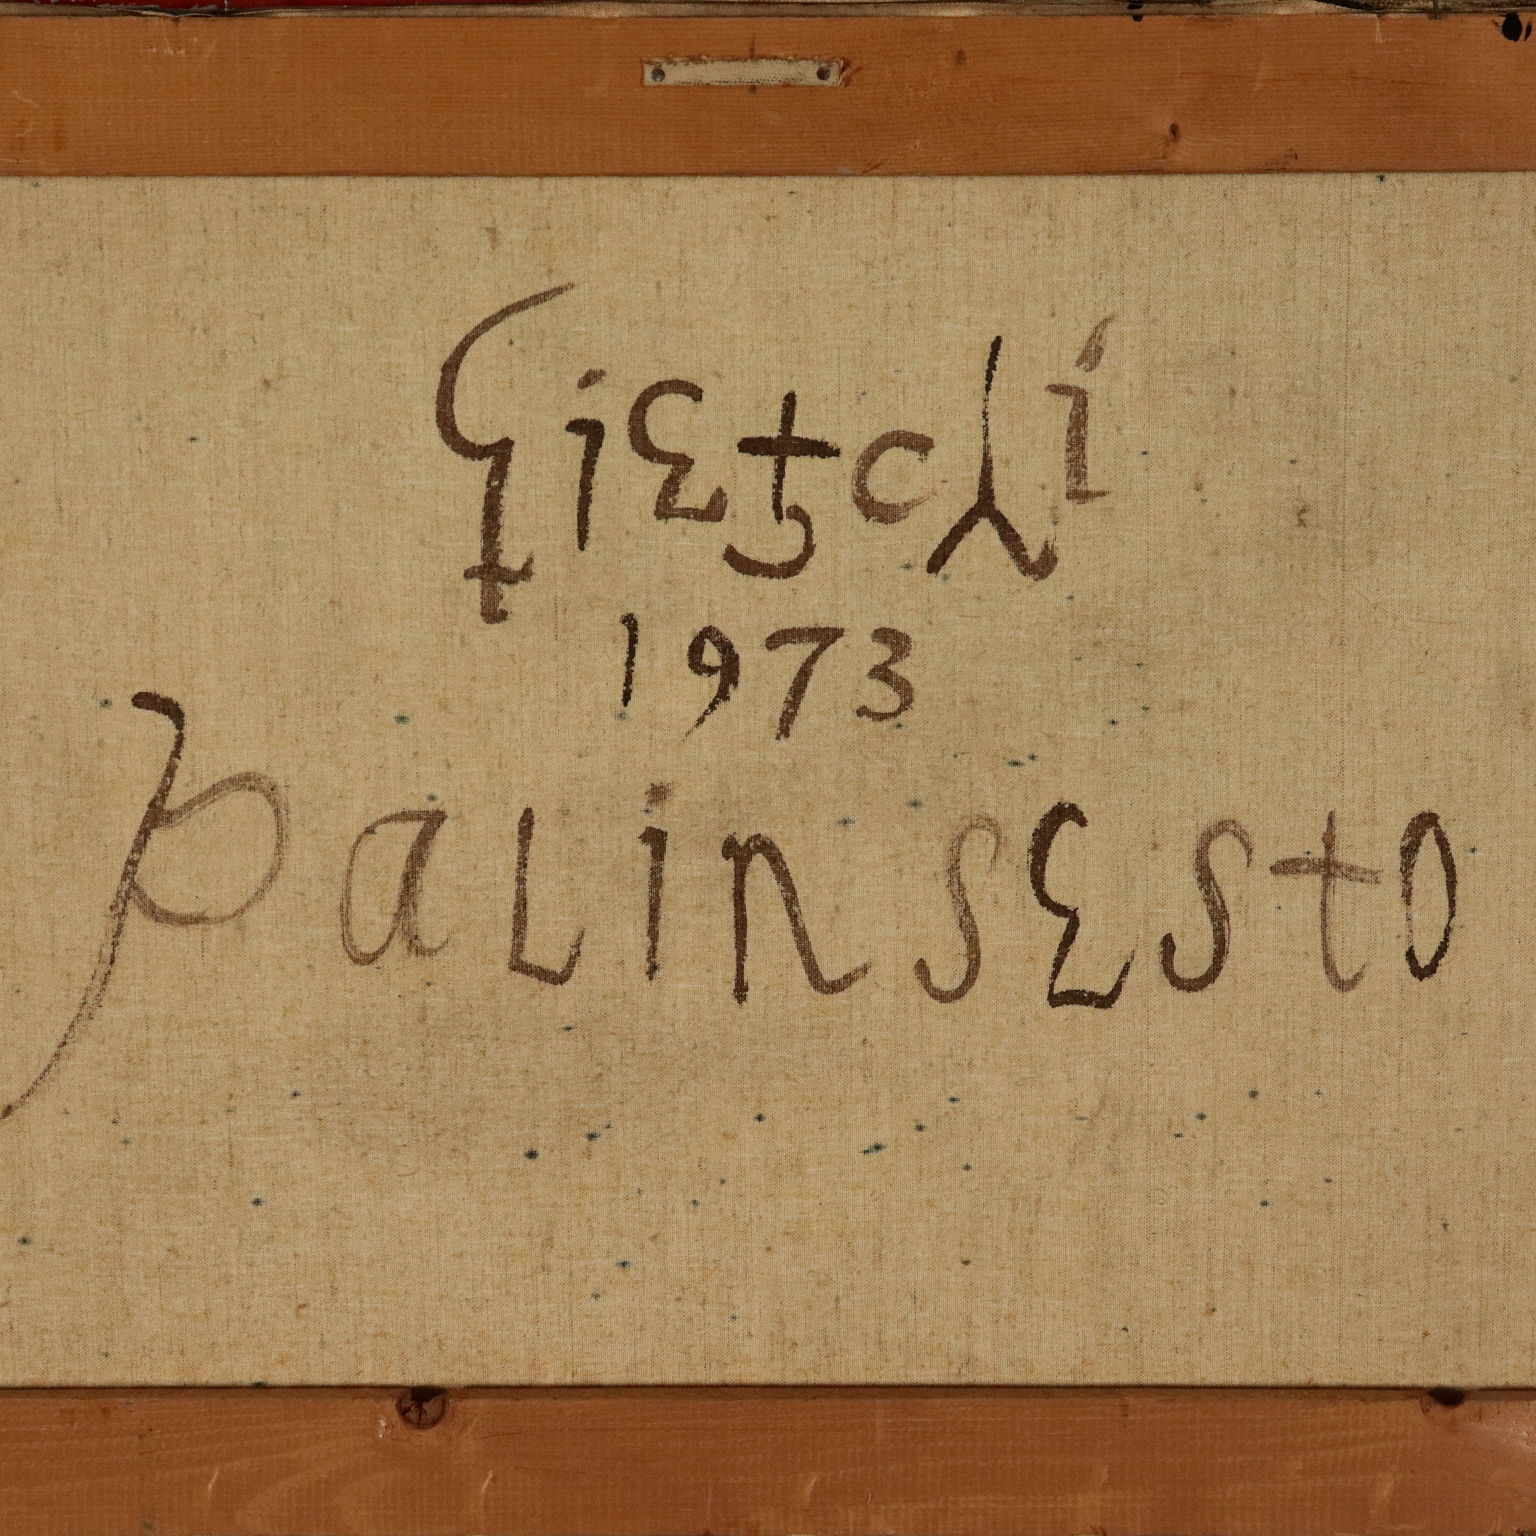 Gietchi
1973
Palinsesto